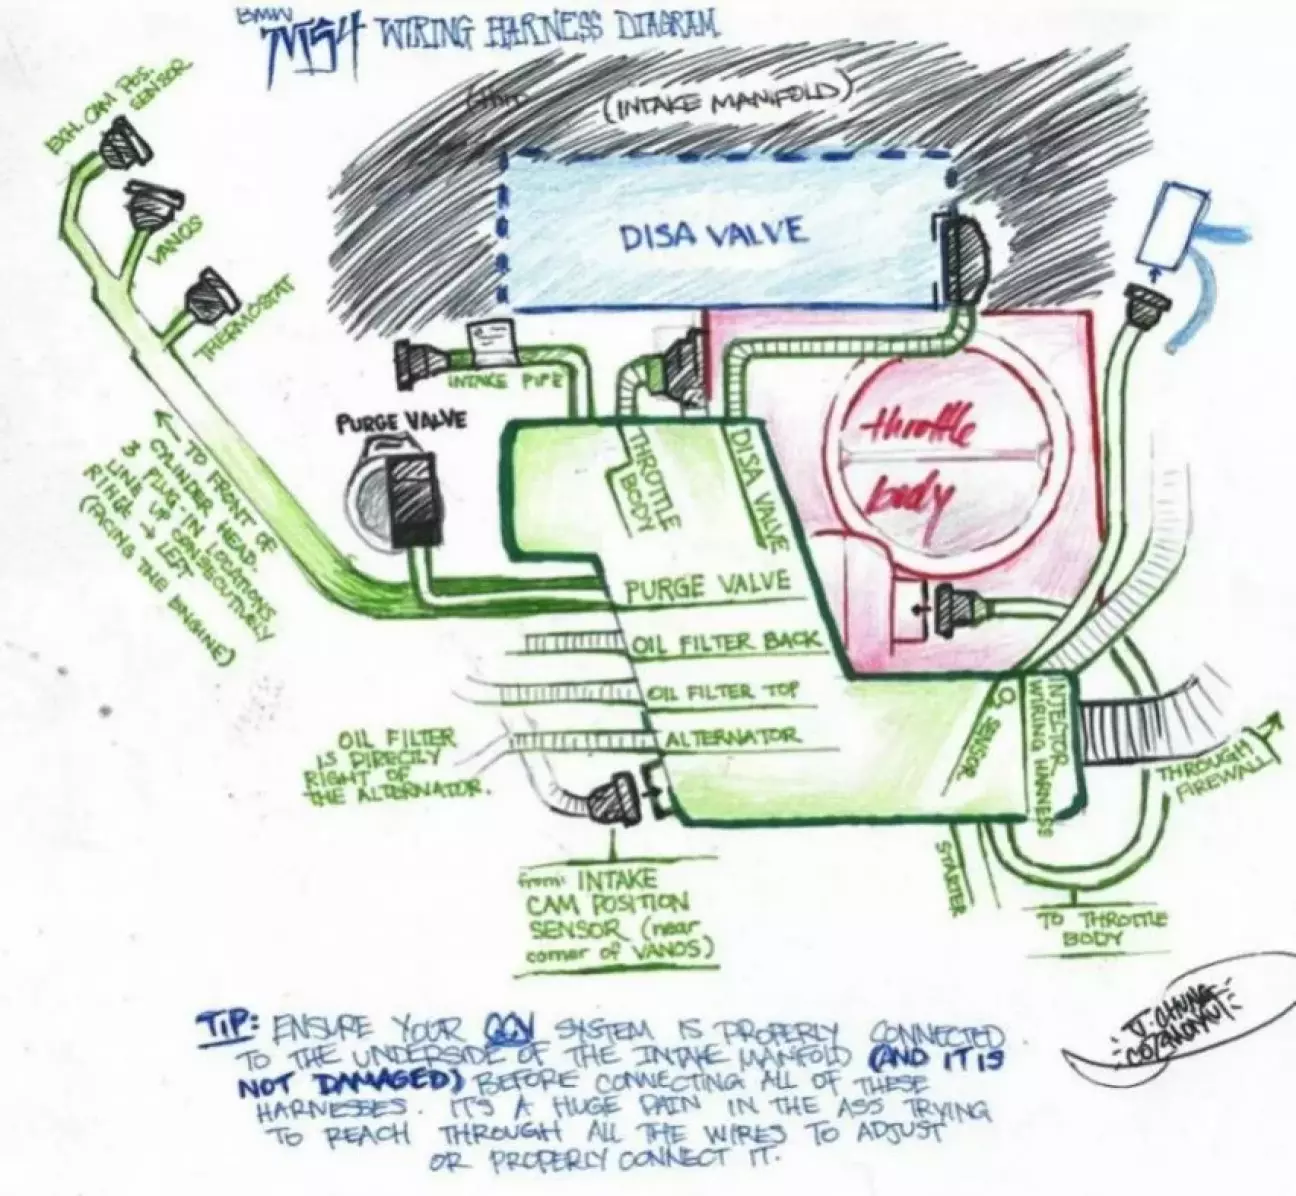 BMW
M54 WIRING HARNESS DIAGRAM
(INTAKE MANIFOLD)
EXH. CAM POS.
SENSOR
VANOS
THERMOSTAT
DISA VALVE
INTAKE PIPE
PURGE VALVE
throttle
body
THROTTLE
BODY
DISA VALVE
← TO FRONT OF
CYLINDER HEAD.
& PLUG-IN LOCATIONS
LINE UP CONSECUTIVELY
RIGHT → LEFT
(FACING THE ENGINE)
PURGE VALVE
OIL FILTER BACK
OIL FILTER TOP
ALTERNATOR
O2 SENSOR
INJECTOR
WIRING HARNESS
OIL FILTER
IS DIRECTLY
RIGHT OF
THE ALTERNATOR.
THROUGH
FIREWALL
STARTER
TO THROTTLE
BODY
from: INTAKE
CAM POSITION
SENSOR (near
corner of VANOS)
TIP: ENSURE YOUR CCV SYSTEM IS PROPERLY CONNECTED
TO THE UNDERSIDE OF THE INTAKE MANFOLD (AND IT IS
NOT DAMAGED) BEFORE CONNECTING ALL OF THESE
HARNESSES. IT'S A HUGE PAIN IN THE ASS TRYING
TO REACH THROUGH ALL THE WIRES TO ADJUST
OR PROPERLY CONNECT IT.
J. CHUNG